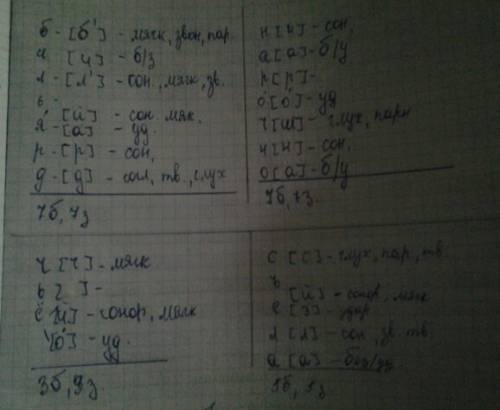 б - [б'] - мягк, звон, пар.
и [и] - б/з
л - [л'] - сон, мягк, зв.
ь -
я [й] - сон. мяк.
- [а] - уд.
р - [р] - сон,
д - [д] - согл, тв., глух
7б, 7з
н [н] - сон,
а [а] - б/у
р [р] -
о [о] - уд
ч [ш] - глух, парн
н [н] - сон,
о [а] - б/у
7б, 7з.
ч [ч] - мягк
ь [ ] -
ё [й] - сонор, мягк
[о] - уд.
3б, 3з
с [с] - глух, пар, тв.
ъ
[й] - сонор, мягк
е [э] - удар
л [л] - сон, зв. тв
а [а] - без/уд
5б, 5з